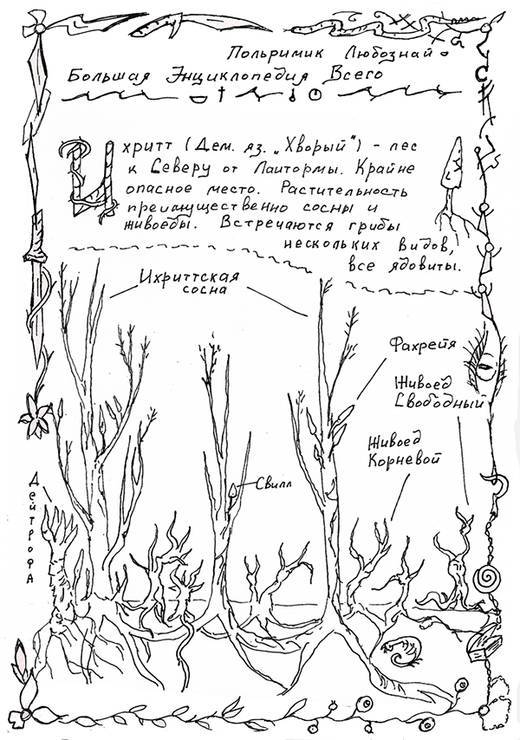 Польримик Любознай
Большая Энциклопедия Всего
Ихритт (Дем. яз. „Хворый") - лес
к Северу от Лаитормы. Крайне
опасное место. Растительность
преимущественно сосны и
живоеды. Встречаются грибы
нескольких видов,
все ядовиты.
Ихриттская
сосна
Фахрейя
Живоед
Свободный
Живоед
Корневой
Свилл
Дейтрофа